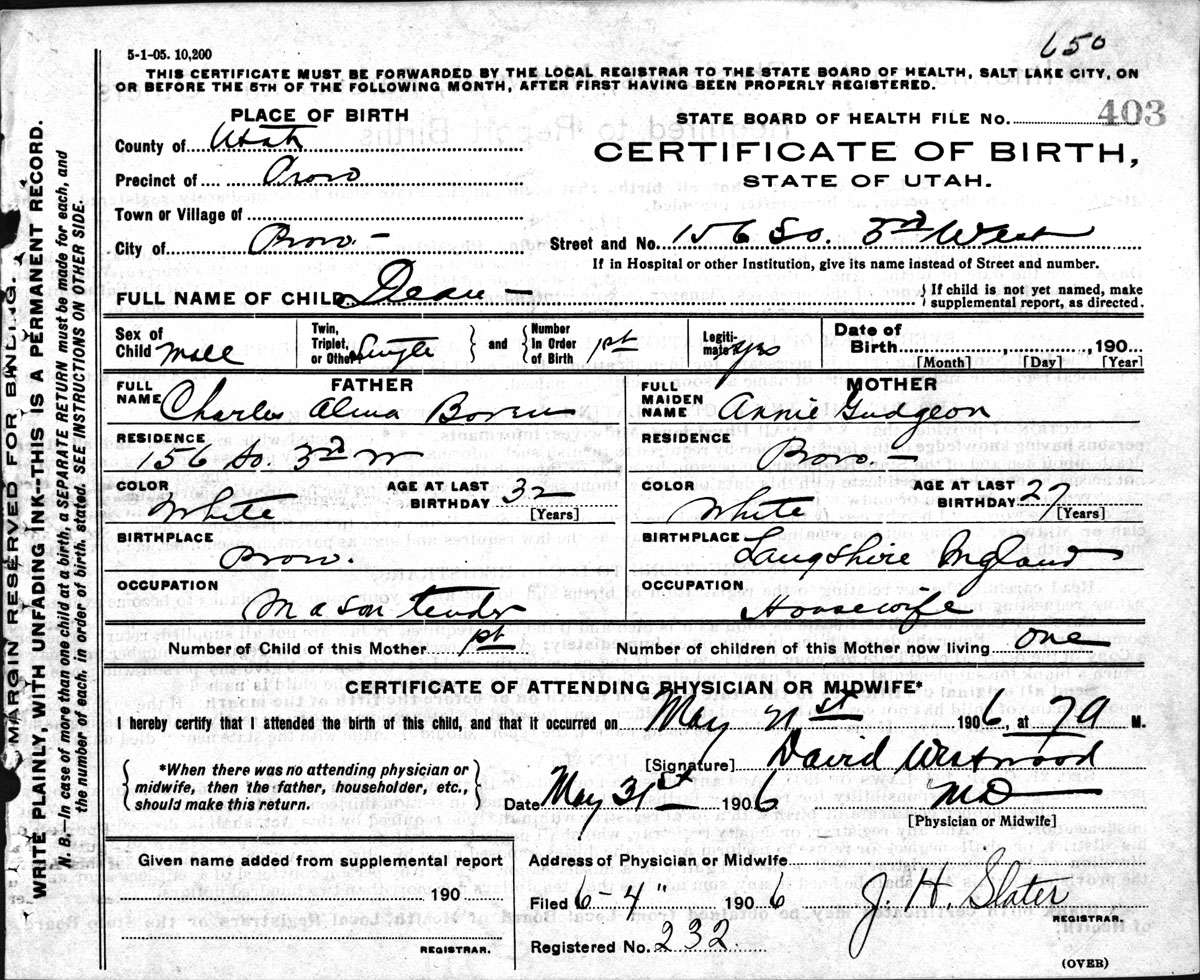 650
5-1-05. 10,200
THIS CERTIFICATE MUST BE FORWARDED BY THE LOCAL REGISTRAR TO THE STATE BOARD OF HEALTH, SALT LAKE CITY, ON
OR BEFORE THE 5TH OF THE FOLLOWING MONTH, AFTER FIRST HAVING BEEN PROPERLY REGISTERED.
PLACE OF BIRTH
STATE BOARD OF HEALTH FILE No. 403
County of Utah
CERTIFICATE OF BIRTH,
Precinct of Provo
STATE OF UTAH.
Town or Village of
City of Provo.
Street and No. 156 So. 3rd West
If in Hospital or other Institution, give its name instead of Street and number.
FULL NAME OF CHILD Dean
{ If child is not yet named, make
supplemental report, as directed.
Sex of Child Male
Twin, Triplet, or Other Single } and { Number In Order of Birth 1st
Legitimate yes
Date of Birth , 190
[Month] [Day] [Year]
FATHER
FULL NAME Charles Alma Boren
MOTHER
FULL MAIDEN NAME Annie Gudgeon
RESIDENCE 156 So. 3rd W
RESIDENCE Provo.
COLOR White
AGE AT LAST BIRTHDAY 32
[Years]
COLOR White
AGE AT LAST BIRTHDAY 27
[Years]
BIRTHPLACE Provo.
BIRTHPLACE Langshire England
OCCUPATION Mason tender
OCCUPATION Housewife
Number of Child of this Mother 1st
Number of children of this Mother now living one
CERTIFICATE OF ATTENDING PHYSICIAN OR MIDWIFE*
I hereby certify that I attended the birth of this child, and that it occurred on May 21st 1906, at 7 a M.
{ *When there was no attending physician or
midwife, then the father, householder, etc.,
should make this return. }
[Signature] David Westwood
Date May 31st 1906
MD
[Physician or Midwife]
Given name added from supplemental report
190
REGISTRAR.
Address of Physician or Midwife
Filed 6-4" 1906
J. H. Slater
REGISTRAR.
Registered No. 232
(OVER)
MARGIN RESERVED FOR BINDING.
WRITE PLAINLY, WITH UNFADING INK--THIS IS A PERMANENT RECORD.
N. B.—In case of more than one child at a birth, a SEPARATE RETURN must be made for each, and
the number of each, in order of birth, stated. SEE INSTRUCTIONS ON OTHER SIDE.